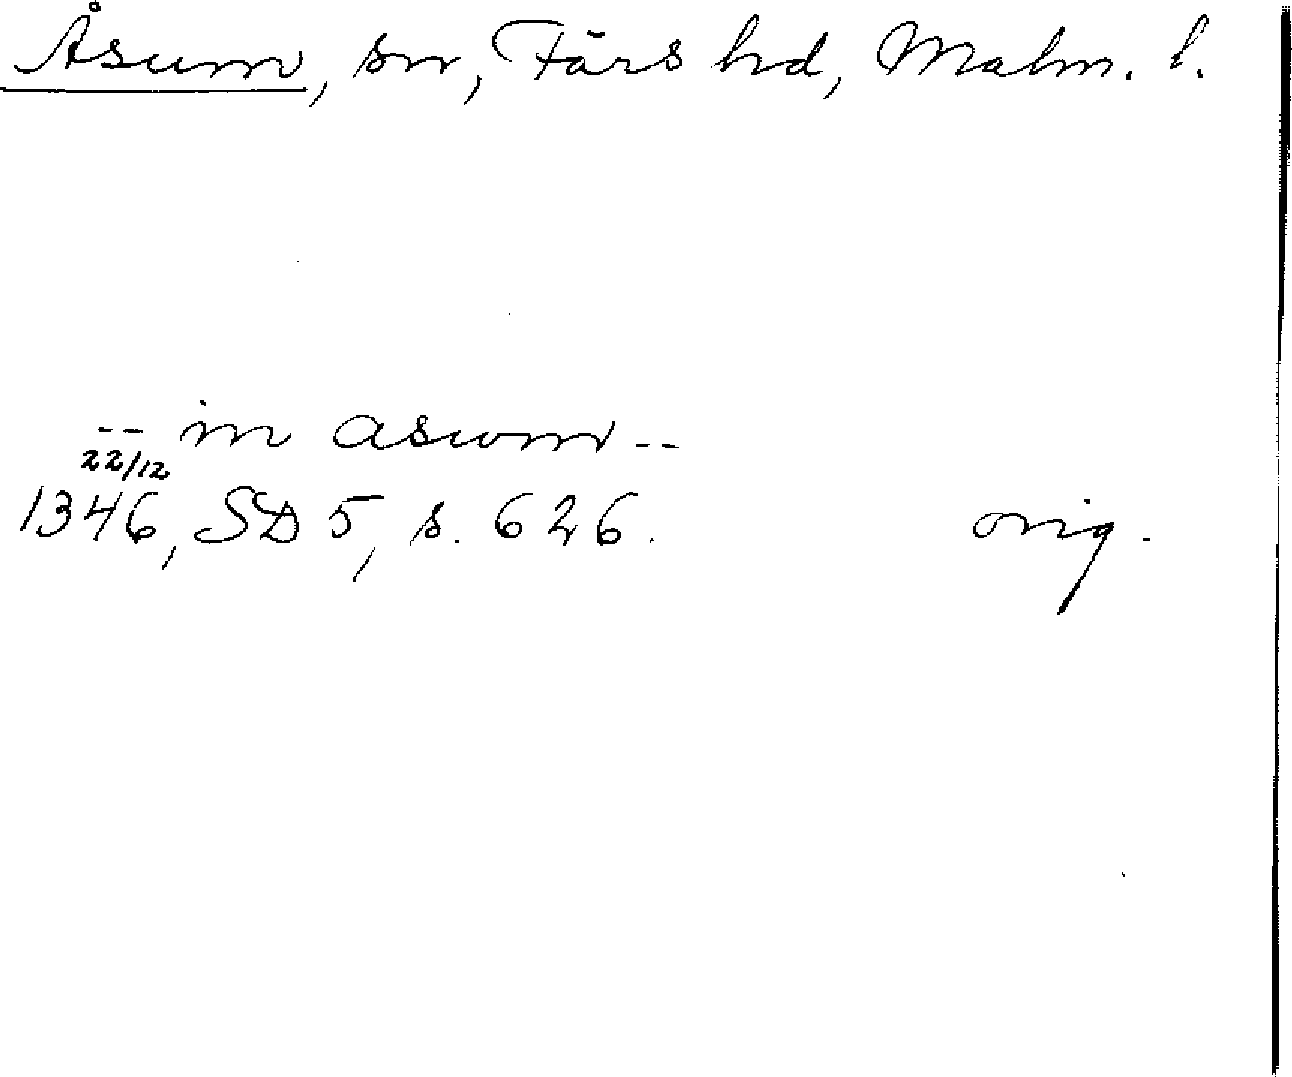 Åsum, sn, Färs hd, Malm. l.
-- in asum --
22/12
1346, SD 5, s. 626. orig.